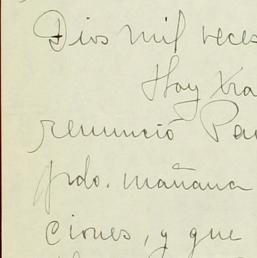 Dios mil veces
Hoy
renunció
pdo. mañana
ciones, y que